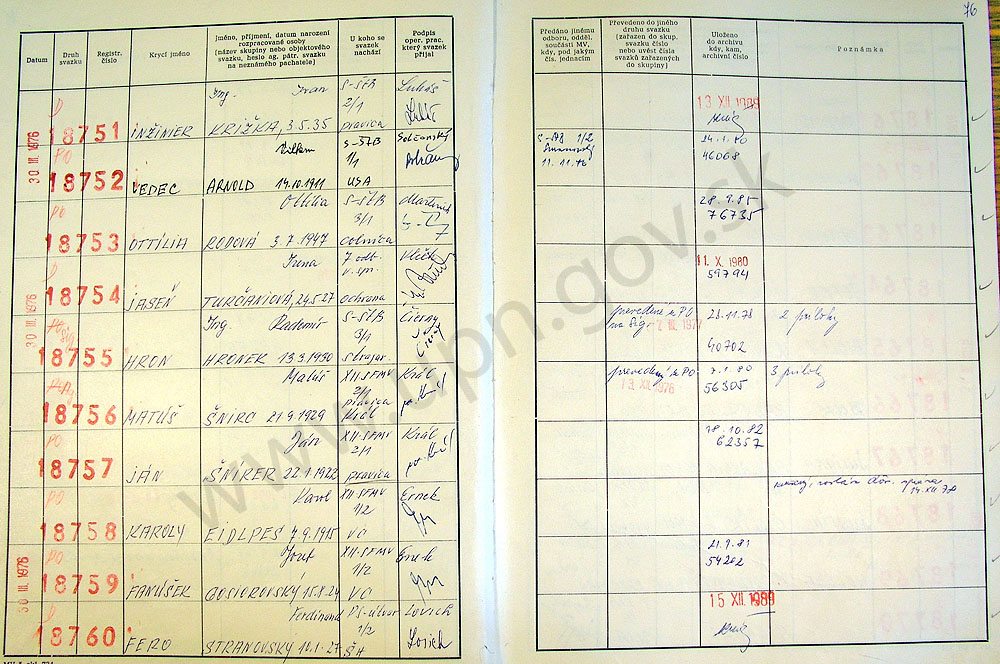 76
Datum
Druh svazku
Registr. číslo
Krycí jméno
Jméno, příjmení, datum narození
rozpracované osoby
(název skupiny nebo objektového
svazku, heslo ag. pátr. svazku
na neznámého pachatele)
U koho se
svazek
nachází
Podpis
oper. prac.
který svazek
přijal
Předáno jinému
odboru, odděl.
součásti MV,
kdy, pod jakým
čís. jednacím
Převedeno do jiného
druhu svazku
(zařazen do skup.
svazku číslo
nebo uvést čísla
svazků zařazených
do skupiny)
Uloženo
do archivu
kdy, kam,
archivní číslo
Poznámka
D Ing. Ivan S-ŠtB Lukáš
2/1
18751 INŽINIER KRIŽKA, 3.5.35 pravica
13 XII. 1989
30 III. 1976
PO Viliam S-ŠTB
1/1
18752 VEDEC ARNOLD 14.10.1911 USA
1/2
11.11.
24.1.80
46068
PO Ottília S-ŠtB
3/1
18753 OTTÍLIA RODOVÁ 3.7.1947 colnica
28.9.85
76735
D Irena 7. odb.
v. spr.
18754 JASEŇ TURČANIOVÁ, 24.5.27 ochrana
11. X. 1980
59794
30 III. 1976
Ing. Radomír S-ŠtB Čierny
3/1
18755 HRON HRONEK 13.3.1930
prevedené z PO
na Sig.
28.11.78
40702
2 prílohy
Matúš XII. SFMV Kráľ
2/1
pravica
18756 MATÚŠ ŠNIRC 21.9.1929 Kráľ
prevedený z PO
13. XII. 1976
7.1.80
56305
3 prílohy
PO Ján XII. SFMV Kráľ
2/1
18757 JÁN ŠNÍRER 22.1.1922 pravica
18.10.82
62357
PO Karol XII SFMV Ernek
1/2
18758 KAROLY EIDLPES 7.9.1915 VC
14.XII.78
PO Jozef XII. SFMV Ernek
1/2
18759 FANÚŠEK GOSIOROVSKÝ 15.8.24 VC
21.9.81
54202
30 III. 1976
PO Ferdinand PS-útvar Lovich
1/2
18760 FERO STRANOVSKÝ 10.1.27 ŠH Lovich
15 XII. 1989
www.upn.gov.sk